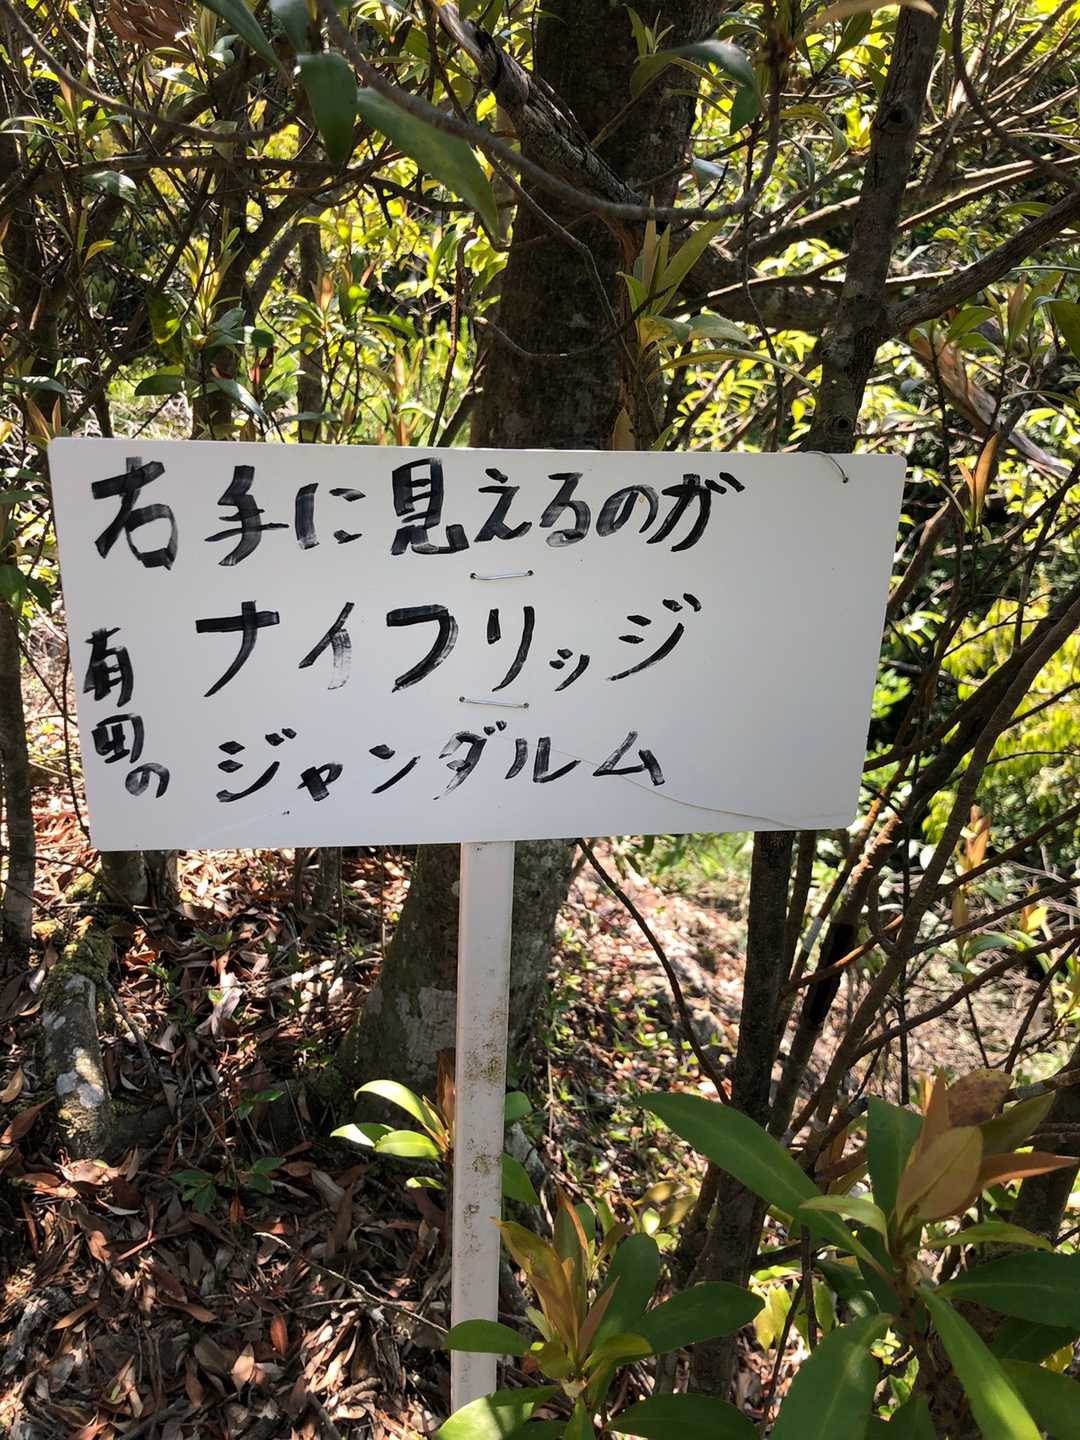 右手に見えるのが
ナイフリッジ
有田の
ジャンダルム